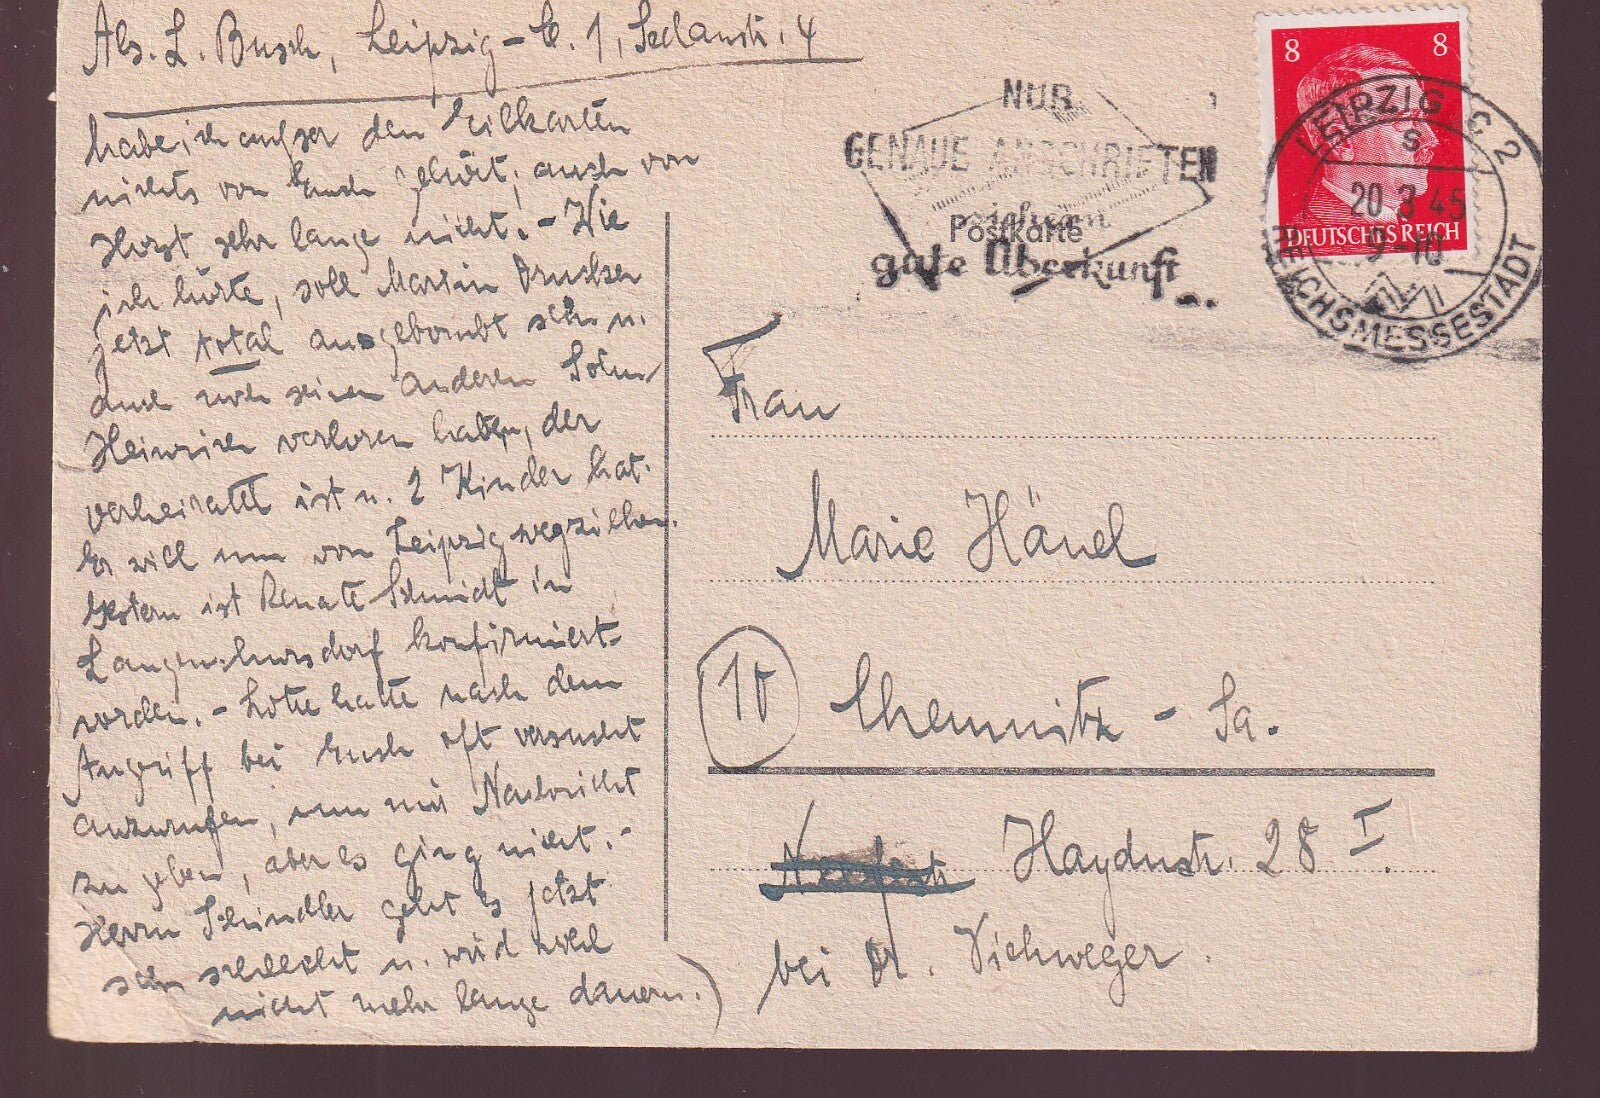 Abs. L. Busch, Leipzig-C. 1, Sedanstr. 4
habe ich außer den Eilkarten
nichts von Euch gehört, auch von
Horst sehr lange nicht. - Wie
ich hörte, soll Martin
jetzt total ausgebombt sein u.
auch noch seinen anderen Sohn
Heinrich verloren haben, der
verheiratet ist u. 2 Kinder hat.
Er will nun von Leipzig wegziehen.
Gestern ist Renate Schmidt in
Langenchursdorf konfirmiert
worden. - Lotte hatte nach dem
Angriff bei Euch oft versucht
anzurufen, um mir Nachricht
zu geben, aber es ging nicht. -
Herrn Schindler geht es jetzt
sehr schlecht u. wird wohl
nicht mehr lange dauern.
NUR
GENAUE ANSCHRIFTEN
sichern
Postkarte
gute Überkunft
8 8
DEUTSCHES REICH
LEIPZIG C 2
S
20.3.45
9-10
REICHSMESSESTADT
Frau
Marie Hänel
10 Chemnitz - Sa.
Haydnstr. 28 I.
bei Dr. Viehweger.